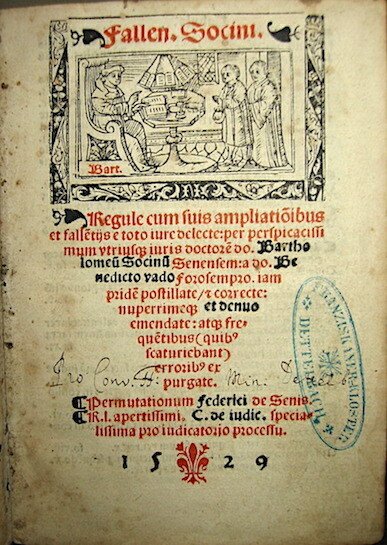 Fallen. Socini.
Bart.
Regule cum suis ampliatiõibus
et fallẽtijs e toto iure delecte: per perspicacissi
mum vtriusqȝ iuris doctorẽ do. Bartho
lomeũ Socinũ Senensem: a do. Be
nedicto vado Forosempro. iam
pridẽ postillate/ ⁊ correcte:
nuperrimeqȝ et denuo
emendate: atqȝ fre
quẽtibus (quibꝰ
scaturiebant)
erroribꝰ ex
purgate.
Pro Conv. Min.
Permutationum federici de Senis.
R.l. apertissimi. C. de iudic. specia
lissima pro iudicatorio processu.
1529
FRANZISKANER-KLOSTER
DETTELBACH